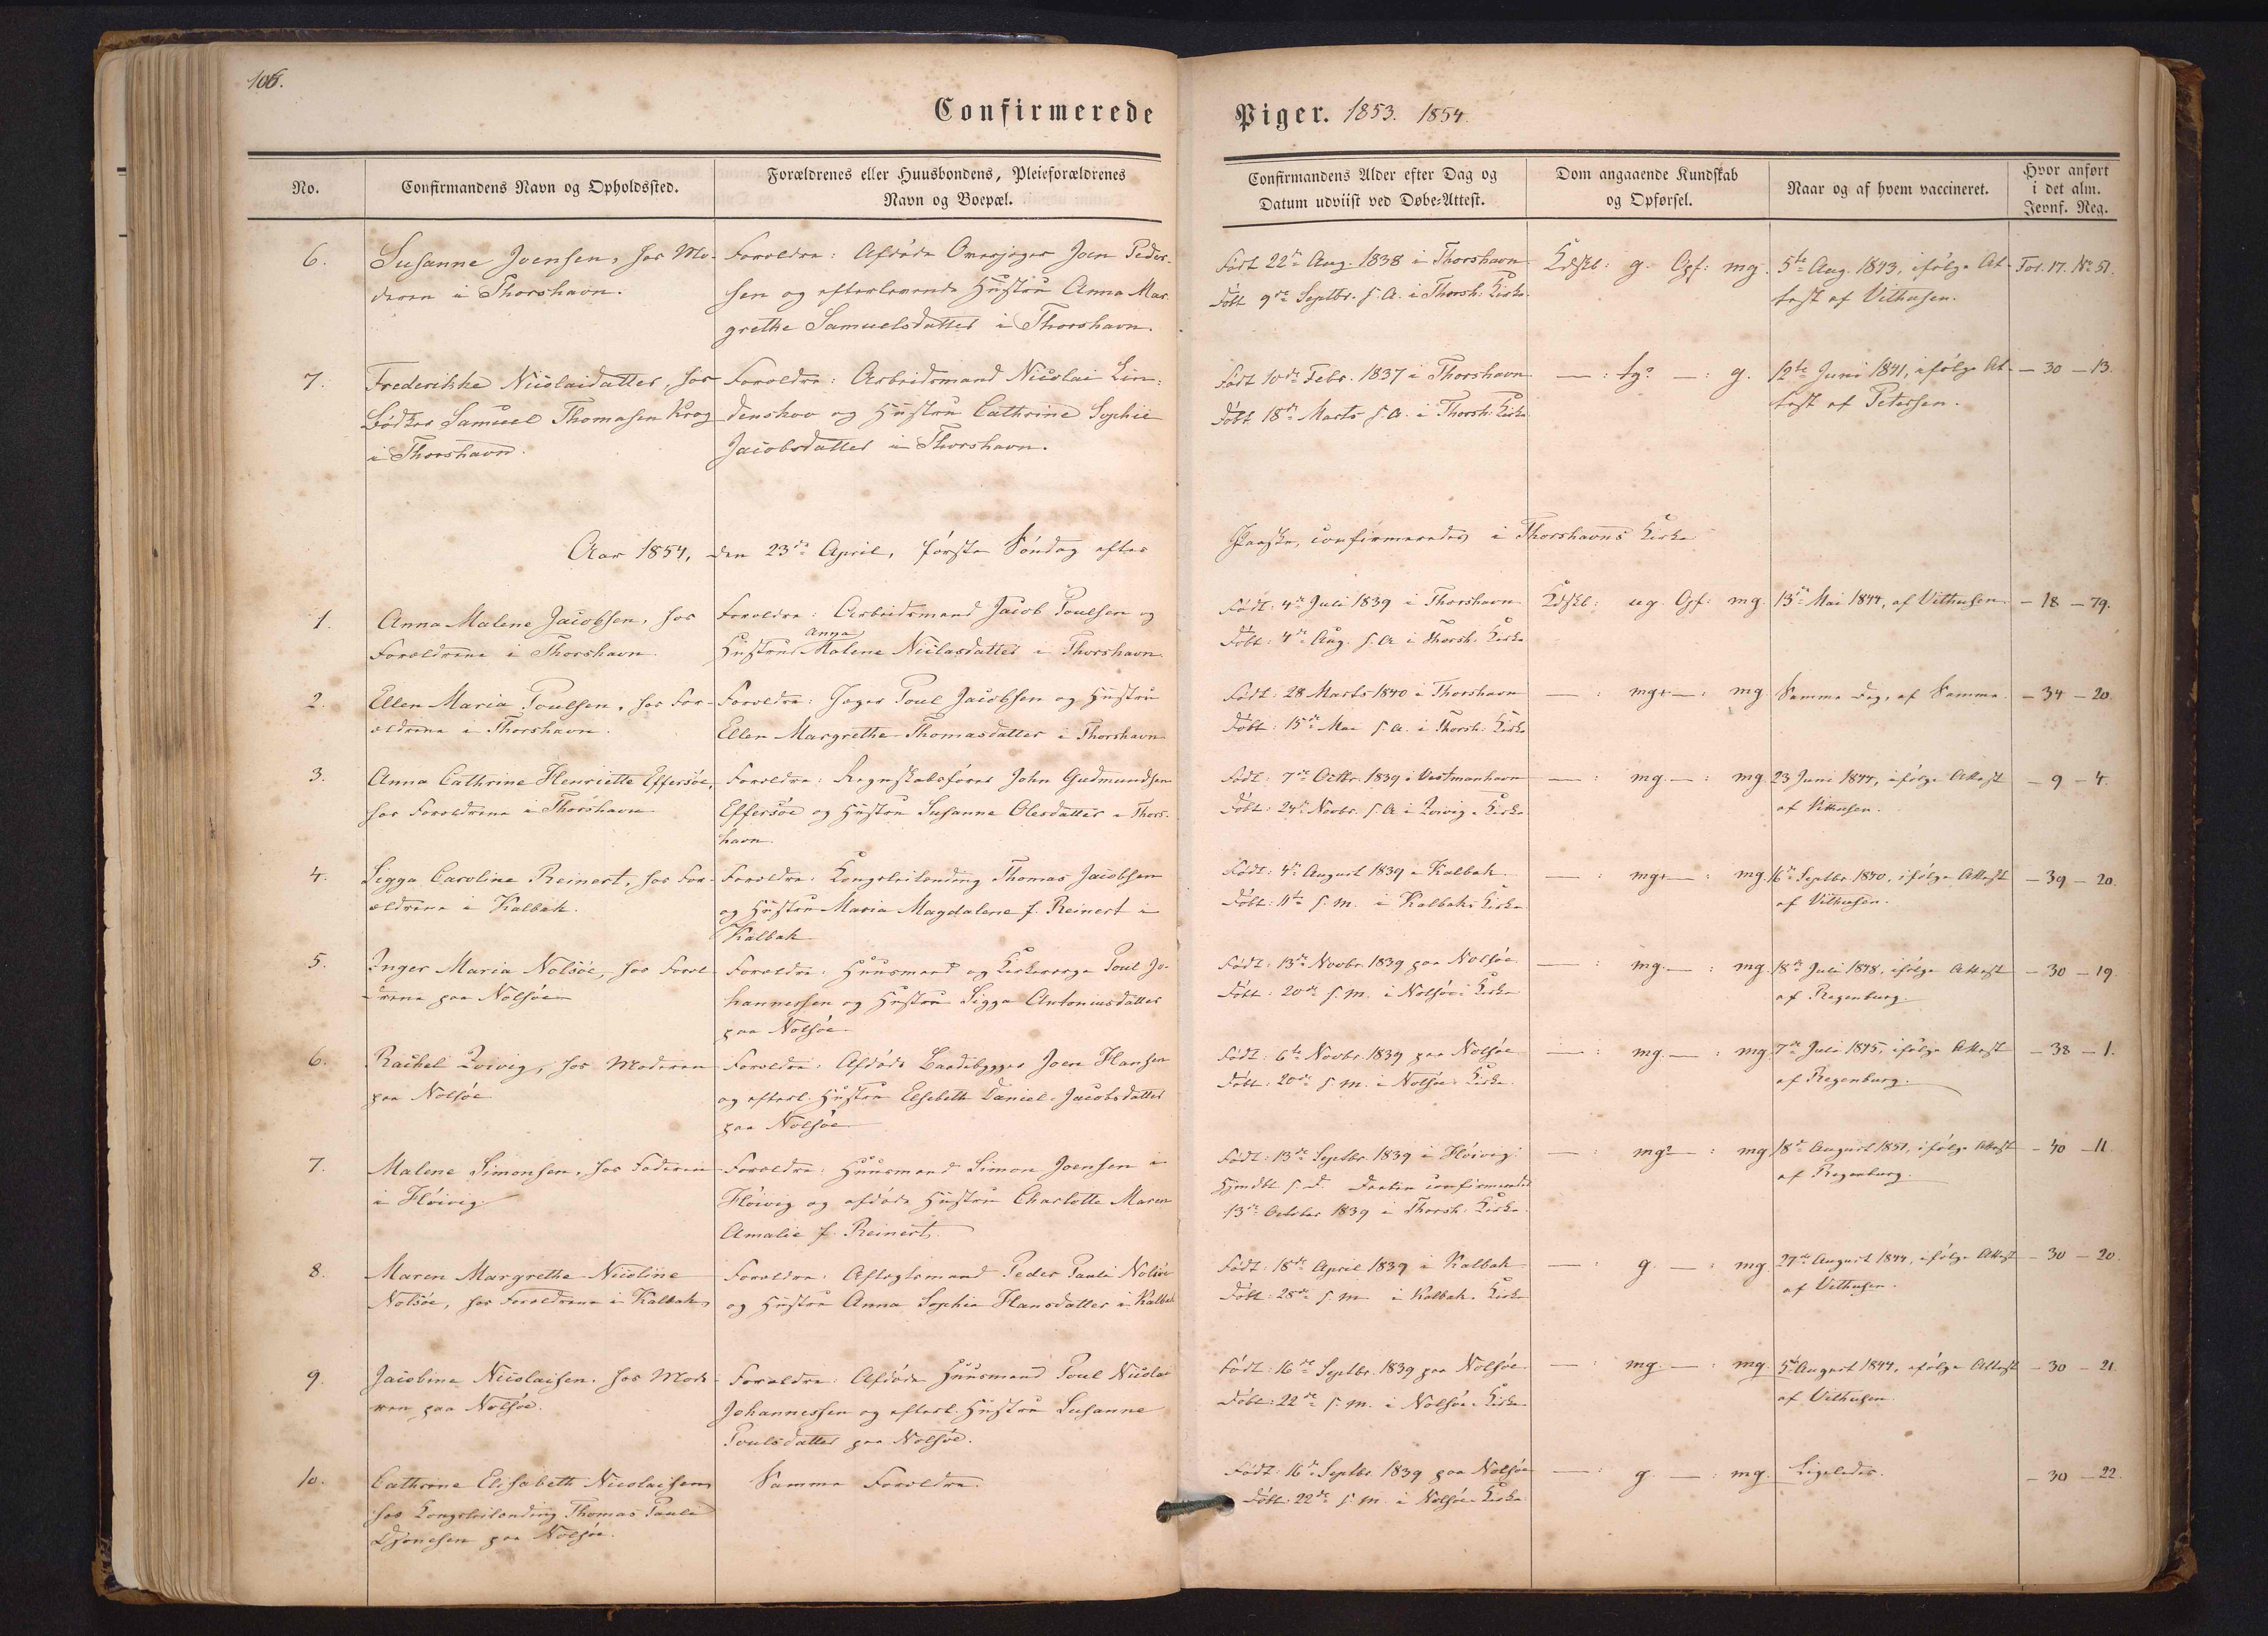 106.
Confirmerede Piger. 1853. 1854.
No.
Confirmandens Navn og Opholdssted.
Forældrenes eller Huusbondens, Pleieforældrenes
Navn og Boepæl.
Confirmandens Alder efter Dag og
Datum udviist ved Døbe-Attest.
Dom angaaende Kundskab
og Opførsel.
Naar og af hvem vaccineret.
Hvor anført
i det alm.
Jevnf. Reg.
6.
Susanne Joensen, hos Mo-
deren i Thorshavn.
Forældre: Afdøde Oversjover Joen Peder-
sen og efterlevende Hustru Anna Mar-
grethe Samuelsdatter i Thorshavn.
Født 22de Aug. 1838 i Thorshavn
Døbt 9de Septbr. s. A. i Thorsh. Kirke.
Kdskb: g. Opf: mg.
5te Aug. 1843, ifølge At-
test af Vithusen.
Fol. 17. No 51.
7.
Frederikke Nicolaidatter, hos
Bødker Samuel Thomasen Krog
i Thorshavn.
Forældre: Arbeidsmand Nicolai Lin-
denskov og Hustru Cathrine Sophie
Jacobsdatter i Thorshavn.
Født 10de Febr. 1837 i Thorshavn
Døbt 18de Marts s. A. i Thorsh. Kirke
— : tg? — : g.
12te Juni 1841, ifølge At-
test af Petersen.
— 30 — 13.
Aar 1854, den 23de April, første Søndag efter Paaske, confirmeredes i Thorshavns Kirke
1.
Anna Malene Jacobsen, hos
Forældrene i Thorshavn.
Forældre: Arbeidsmand Jacob Poulsen og
Anna
Hustru Malene Niclasdatter i Thorshavn.
Født: 4de Juli 1839 i Thorshavn
Døbt: 4de Aug. s. A. i Thorsh. Kirke
Kdskb: ug. Opf: mg.
13de Mai 1844, af Vithusen.
— 18 — 79.
2.
Ellen Maria Poulsen, hos For-
ældrene i Thorshavn.
Forældre: Jæger Poul Jacobsen og Hustru
Ellen Margrethe Thomasdatter i Thorshavn
Født: 28 Marts 1840 i Thorshavn
Døbt: 15de Mai s. A. i Thorsh. Kirke
— : mg+ — : mg.
Samme Dag, af Samme.
— 34 — 20.
3.
Anna Cathrine Henriette Effersøe,
hos Forældrene i Thorshavn
Forældre: Regnskabsfører John Gudmundsen
Effersøe og Hustru Susanne Olesdatter i Thors-
havn.
Født: 7de Octbr. 1839 i Vestmanhavn
Døbt: 24de Novbr. s. A. i Qvivig. Kirke
— : mg. — : mg.
23 Juni 1844, ifølge Attest
af Vithusen.
— 9 — 4.
4.
Sigga Caroline Reinert, hos For-
ældrene i Kalbak.
Forældre: Kongsleilending Thomas Jacobsen
og Hustru Maria Magdalene f. Reinert i
Kalbak
Født: 4de August 1839 i Kalbak.
Døbt: 11te s. M. i Kalbaks Kirke
— : mg+ — : mg.
16de Septbr. 1840, ifølge Attest
af Vithusen.
— 39 — 20.
5.
Inger Maria Nolsöe, hos Foræl-
drene paa Nolsöe
Forældre: Huusmand og Kirkeværge Poul Jo-
hannessen og Hustru Sigga Antoniusdatter
paa Nolsöe
Født: 13de Novbr. 1839 paa Nolsöe
Døbt: 20de s. M. i Nolsöe. Kirke
— : mg. — : mg.
18de Juli 1848, ifølge Attest
af Regenburg.
— 30 — 19.
6.
Rachel Qvivig, hos Moderen
paa Nolsöe
Forældre: Afdøde Baadebygger Joen Hansen
og efterl. Hustru Elsebeth Daniel-Jacobsdatter
paa Nolsöe
Født: 6te Novbr. 1839 paa Nolsöe
Døbt: 20de s. M. i Nolsöe. Kirke.
— : mg. — : mg.
7de Juli 1845, ifølge Attest
af Regenburg.
— 38 — 1.
7.
Malene Simonsen, hos Faderen
i Høivig.
Forældre: Huusmand Simon Joensen i
Høivig og afdøde Hustru Charlotte Maren
Amalie f. Reinert.
Født: 13de Septbr. 1839 i Høivig.
Hjemdbt s. D. Daaben confirmeredes
13de October 1839 i Thorsh. Kirke.
— : mg? — : mg.
18de August 1851, ifølge Attest
af Regenburg.
— 40 — 11.
8.
Maren Margrethe Nicoline
Nolsöe, hos Forældrene i Kalbak,
Forældre: Aftægtsmand Peder Pauli Nolsöe
og Hustru Anna Sophie Hansdatter i Kalbak
Født: 18de April 1839 i Kalbak
Døbt: 28de s. M. i Kalbak. Kirke
— : g. — : mg.
27de August 1844, ifølge Attest
af Vithusen.
— 30 — 20.
9.
Jacobine Nicolaisen. hos Mode-
ren paa Nolsöe.
Forældre: Afdøde Huusmand Poul Nicolai
Johannessen og efterl. Hustru Susanne
Poulsdatter paa Nolsöe.
Født: 16de Septbr. 1839 paa Nolsöe.
Døbt: 22de s. M. i Nolsöe. Kirke
— : mg. — : mg.
5te August 1844, ifølge Attest
af Vithusen.
— 30 — 21.
10.
Cathrine Elisabeth Nicolaisen
hos Kongsleilending Thomas Pauli
Djonesen paa Nolsöe.
Samme Forældre.
Født: 16de Septbr. 1839 paa Nolsöe
Døbt: 22de s. M. i Nolsöe. Kirke
— : g. — : mg.
Ligeledes.
— 30 — 22.